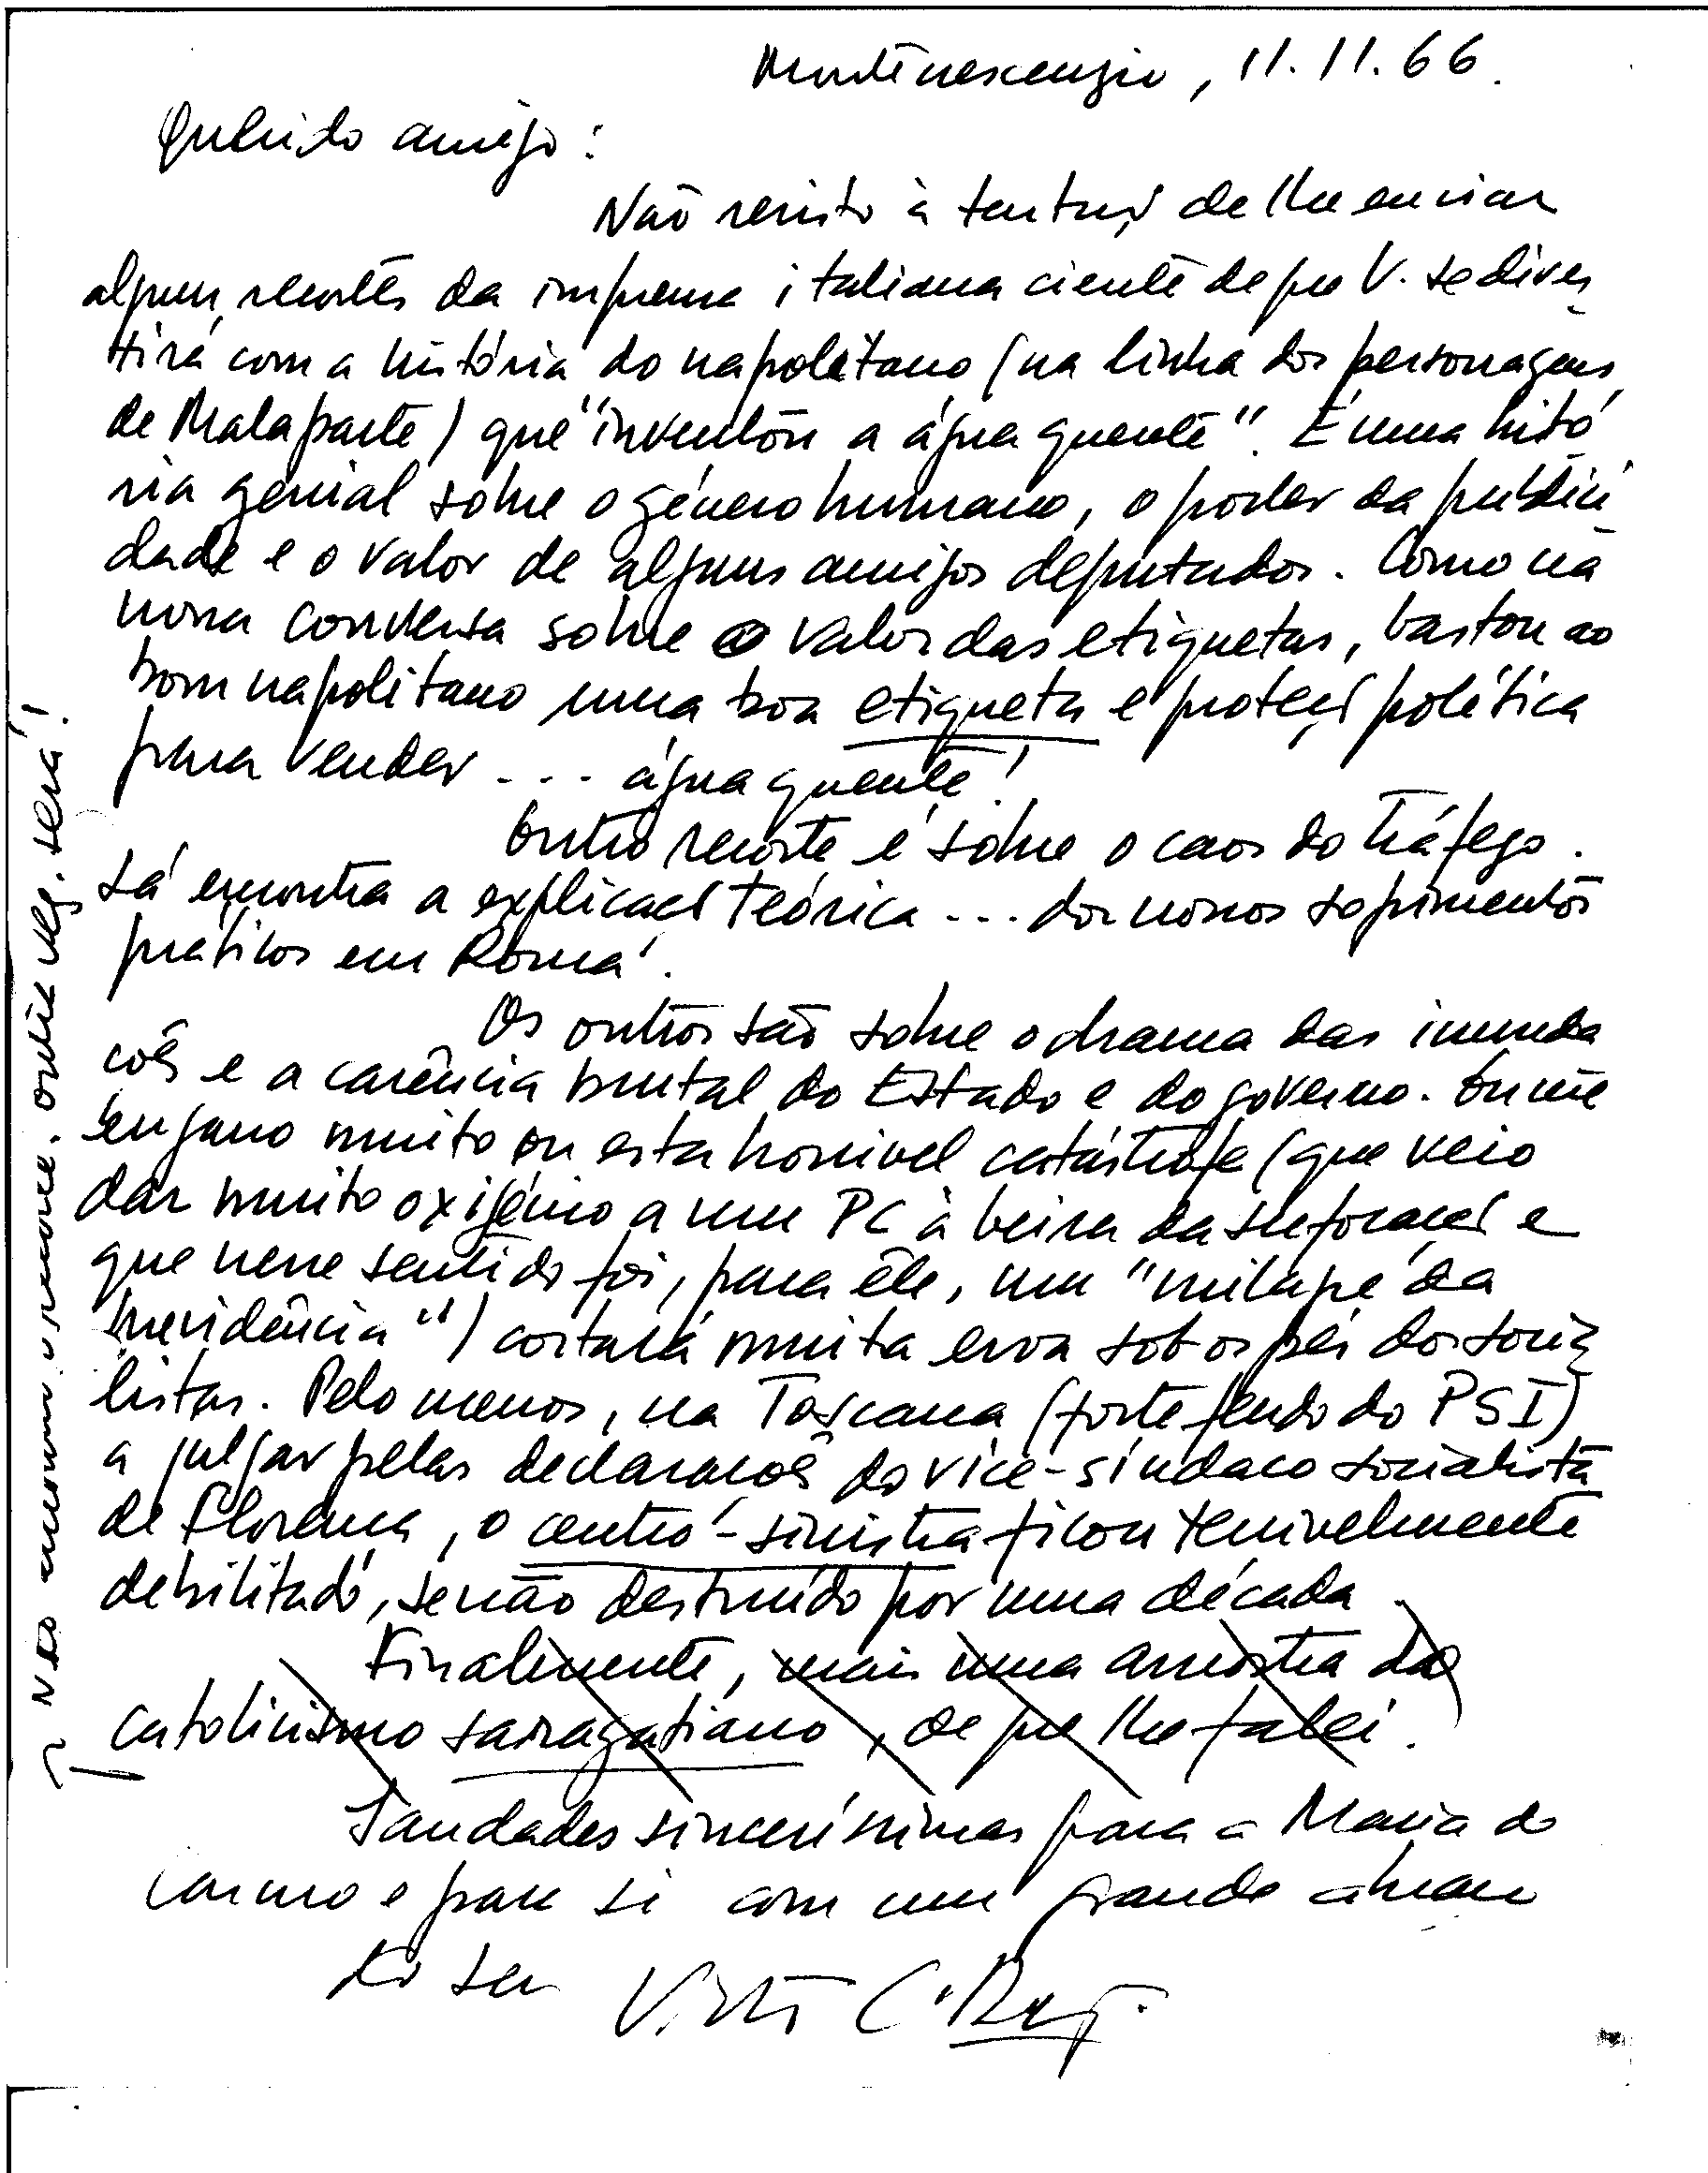 Montenescenzio, 11.11.66.
Querido amigo:
Não resisto à tentação de lhe enviar
alguns recortes da imprensa italiana ciente de que V. se diver
tirá com a história do napolitano (na linha dos personagens
de Malaparte) que "inventou a água quente". É uma histó
ria genial sobre o género humano, o poder da publici
dade e o valor de alguns amigos deputados. Como na
nossa conversa sobre o valor das etiquetas, bastou ao
bom napolitano uma boa etiqueta e proteção política
para vender ... água quente!
Outro recorte é sobre o caos do tráfego.
Lá encontra a explicação teórica ... dos nossos sofrimentos
práticos em Roma.
Os outros são sobre o drama das inunda
ções e a carência brutal do Estado e do governo. Ou me
engano muito ou esta horrível catástrofe (que veio
dar muito oxigénio a um PC à beira da sufocação e
que nesse sentido foi, para êle, um "milagre da
Providência") cortará muita erva sob os pés dos socia
listas. Pelo menos, na Toscana (forte feudo do PSI)
a julgar pelas declarações do vice-síndaco socialista
de Florença, o centro-sinistra ficou terrivelmente
debilitado, senão destruído por uma década.
Finalmente, mais uma amostra do
catolicismo saragatiano, de que lhe falei.
Saudades sinceríssimas para a Maria do
Carmo e para si com um grande abraço
do seu
Não o recorte. será!